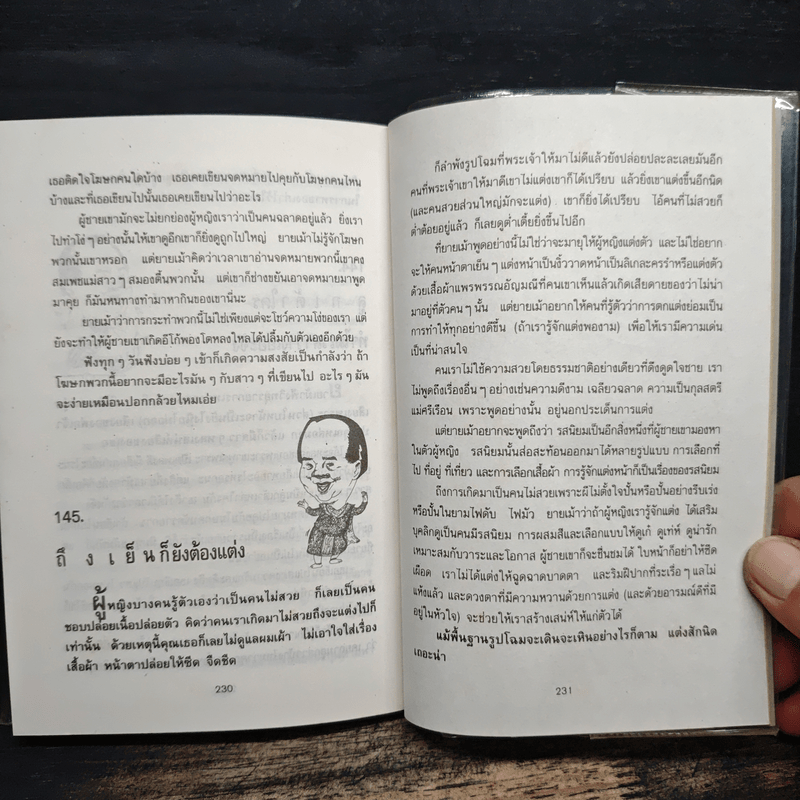 เธอติดใจโฆษกคนใดบ้าง เธอเคยเขียนจดหมายไปคุยกับโฆษกคนไหน
บ้างและที่เธอเขียนไปนั้นเธอเคยเขียนไปว่าอะไร
ผู้ชายเขามักจะไม่ยกย่องผู้หญิงเราว่าเป็นคนฉลาดอยู่แล้ว ยิ่งเรา
ไปทำโง่ๆอย่างนั้นให้เขาดูอีกเขาก็ยิ่งดูถูกไปใหญ่ ยายเม้าไม่รู้จักโฆษก
พวกนั้นเขาหรอก แต่ยายเม้าคิดว่าเวลาเขาอ่านจดหมายพวกนี้เขาคง
สมเพชแม่สาวๆ สมองตื้นพวกนั้น แต่เขาก็ช่างขยันเอาจดหมายมาพูด
มาคุย ก็มันหนทางทำมาหากินของเขานี่นะ
ยายเม้าว่าการกระทำพวกนี้ไม่ใช่เพียงแต่จะโชว์ความโง่ของเรา แต่
ยังจะทำให้ผู้ชายเขาเกิดอีโก้พองโตหลงใหลได้ปลื้มกับตัวเองอีกด้วย
ฟังทุกๆ วันฟังบ่อยๆ เข้าก็เกิดความสงสัยเป็นกำลังว่า ถ้า
โฆษกพวกนี้อยากจะมีอะไรมันๆ กับสาวๆ ที่เขียนไป อะไรๆ มัน
จะง่ายเหมือนปอกกล้วยไหมเอ่ย
145.
ถึงเย็นก็ยังต้องแต่ง
ผู้หญิงบางคนรู้ตัวเองว่าเป็นคนไม่สวย ก็เลยเป็นคน
ชอบปล่อยเนื้อปล่อยตัว คิดว่าคนเราเกิดมาไม่สวยถึงจะแต่งไปก็
เท่านั้น ด้วยเหตุนี้คุณเธอก็เลยไม่ดูแลผมเผ้า ไม่เอาใจใส่เรื่อง
เสื้อผ้า หน้าตาปล่อยให้ซีด จืดชืด
230
ก็ลำพังรูปโฉมที่พระเจ้าให้มาไม่ดีแล้วยังปล่อยปละละเลยมันอีก
คนที่พระเจ้าเขาให้มาดีเขาไม่แต่งเขาก็ได้เปรียบ แล้วยิ่งเขาแต่งขึ้นอีกนิด
(และคนสวยส่วนใหญ่มักจะแต่ง) เขาก็ยิ่งได้เปรียบ ไอ้คนที่ไม่สวยก็
ต่ำต้อยอยู่แล้ว ก็เลยดูต่ำเตี้ยยิ่งขึ้นไปอีก
ที่ยายเม้าพูดอย่างนี้ไม่ใช่ว่าจะมายุให้ผู้หญิงแต่งตัว และไม่ใช่อยาก
จะให้คนหน้าตาเย็นๆ แต่งหน้าเป็นงิ้ววาดหน้าเป็นลิเกละครรำหรือแต่งตัว
ด้วยเสื้อผ้าแพรพรรณอัญมณีที่คนเขาเห็นแล้วเกิดเสียดายของว่าไม่น่า
มาอยู่ที่ตัวคนๆ นั้น แต่ยายเม้าอยากให้คนที่รู้ตัวว่าการตกแต่งย่อมเป็น
การทำให้ทุกอย่างดีขึ้น (ถ้าเรารู้จักแต่งพองาม) เพื่อให้เรามีความเด่น
เป็นที่น่าสนใจ
คนเราไม่ใช้ความสวยโดยธรรมชาติอย่างเดียวที่ดึงดูดใจชาย เรา
ไม่พูดถึงเรื่องอื่นๆ อย่างเช่นความดีงาม เฉลียวฉลาด ความเป็นกุลสตรี
แม่ศรีเรือน เพราะพูดอย่างนั้น อยู่นอกประเด็นการแต่ง
แต่ยายเม้าอยากจะพูดถึงว่า รสนิยมเป็นอีกสิ่งหนึ่งที่ผู้ชายเขามองหา
ในตัวผู้หญิง รสนิยมนั้นส่อสะท้อนออกมาได้หลายรูปแบบ การเลือกที่
ไป ที่อยู่ ที่เที่ยว และการเลือกเสื้อผ้า การรู้จักแต่งหน้าก็เป็นเรื่องของรสนิยม
ถึงการเกิดมาเป็นคนไม่สวยเพราะผีไม่ตั้งใจปั้นหรือปั้นอย่างรีบเร่ง
หรือปั้นในยามไฟดับ ไฟมัว ยายเม้าว่าถ้าผู้หญิงเรารู้จักแต่ง ได้เสริม
บุคลิกดูเป็นคนมีรสนิยม การผสมสีและเลือกแบบให้ดูเก๋ ดูเท่ห์ ดูน่ารัก
เหมาะสมกับวาระและโอกาส ผู้ชายเขาก็จะชื่นชมได้ ใบหน้าก็อย่าให้ซีด
เผือด เราไม่ได้แต่งให้ฉูดฉาดบาดตา และริมฝีปากที่ระเรื่อๆ แลไม่
แห้งแล้ง และดวงตาที่มีความหวานด้วยการแต่ง (และด้วยอารมณ์ดีที่มี
อยู่ในหัวใจ) จะช่วยให้เราสร้างเสน่ห์ให้แก่ตัวได้
แม้พื้นฐานรูปโฉมจะเดินจะเหินอย่างไรก็ตาม แต่งสักนิด
เถอะน่า
231